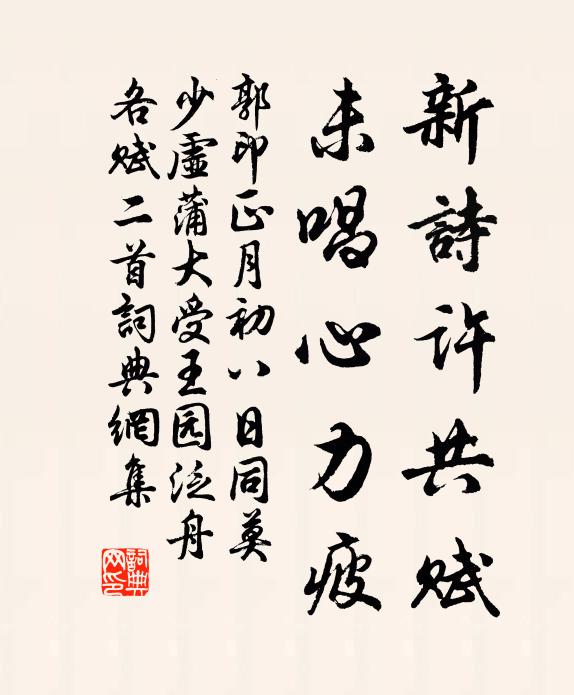 新詩许共赋
未唱心力疲
郭印正月初八日同莫
少虛蒲大受王园泛舟
各赋二首詞典網集
詞典网印